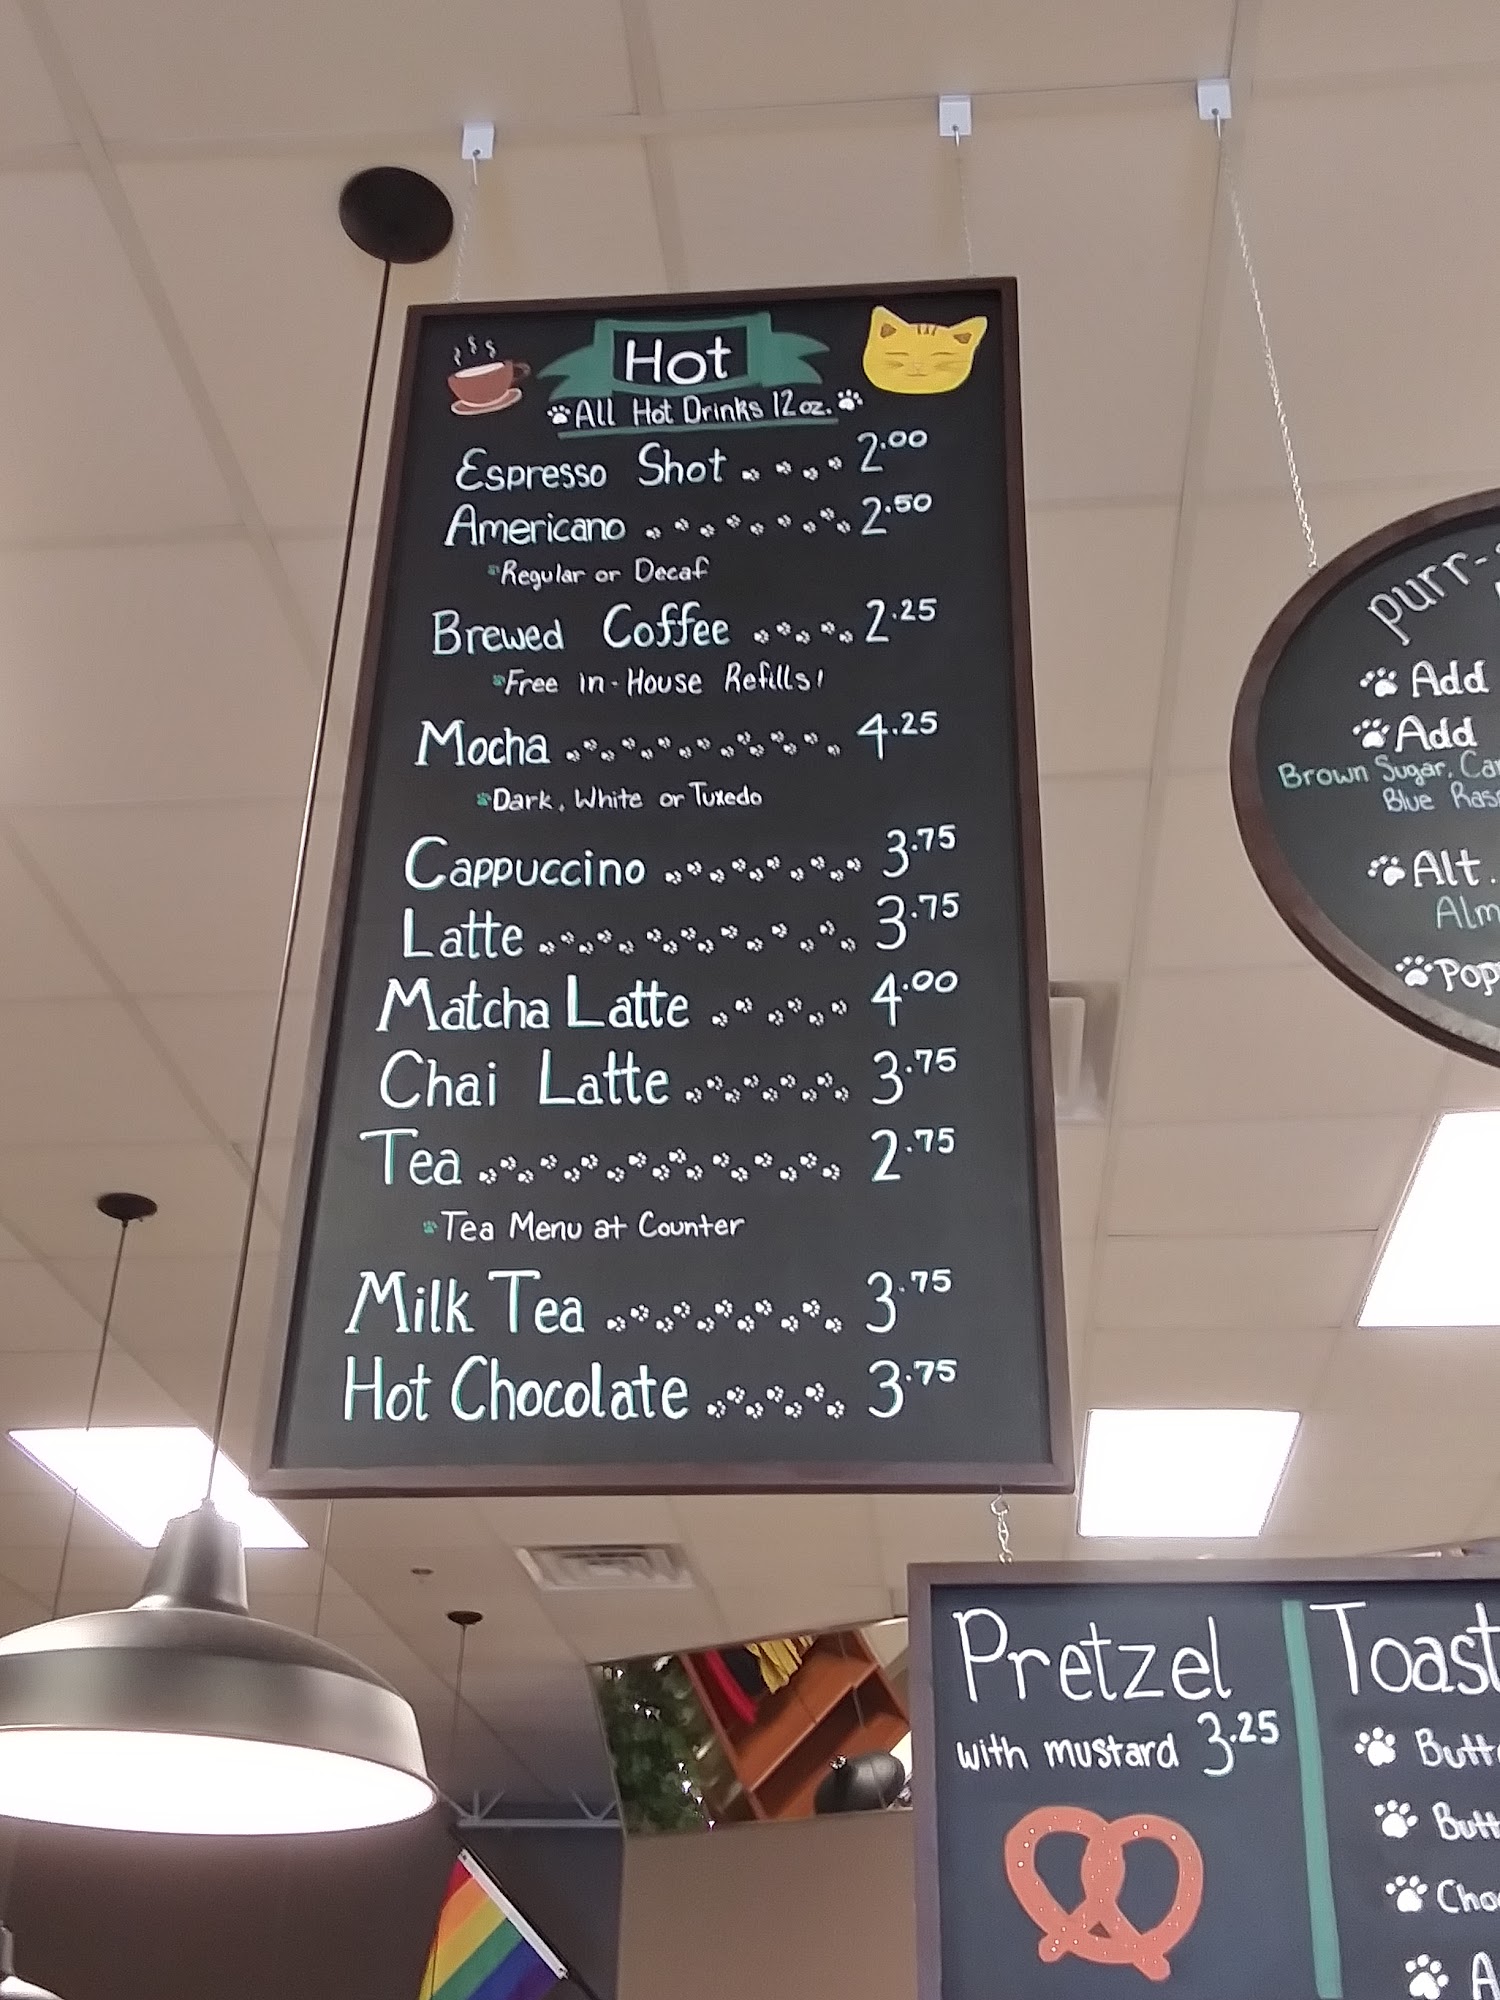 Hot
All Hot Drinks 12 oz.
Espresso Shot 2.00
Americano 2.50
Regular or Decaf
Brewed Coffee 2.25
Free in-House Refills!
Mocha 4.25
Dark, White or Tuxedo
Cappuccino 3.75
Latte 3.75
Matcha Latte 4.00
Chai Latte 3.75
Tea 2.75
Tea Menu at Counter
Milk Tea 3.75
Hot Chocolate 3.75
purr-
Add
Add
Brown Sugar, Ca
Blue Ras
Alt.
Alm
Pop
Pretzel
with mustard 3.25
Toast
Butt
Butt
Cho
A